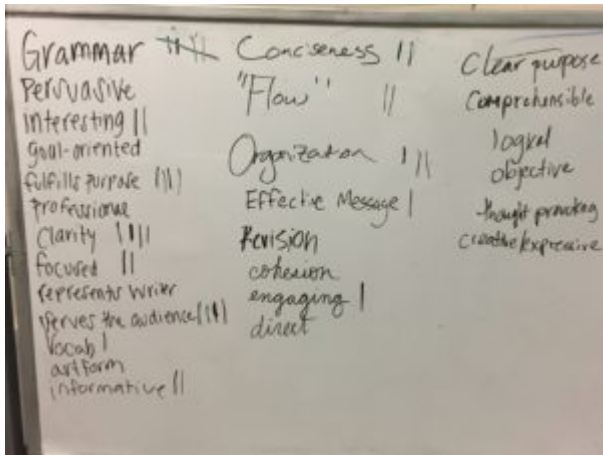 Grammar
Persuasive
interesting ||
goal-oriented
fulfills purpose ||||
Professional
Clarity ||||
focused ||
represents writer
serves the audience ||||
Vocab |
artform
informative ||
Conciseness ||
"Flow" ||
Organization |||
Effective Message |
Revision
cohesion
engaging |
direct
Clear purpose
Comprehensible
logical
objective
thought provoking
creative/expressive